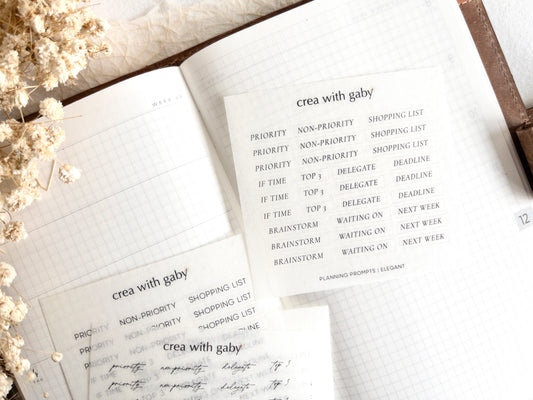 crea with gaby
PRIORITY NON-PRIORITY SHOPPING LIST
PRIORITY NON-PRIORITY SHOPPING LIST
PRIORITY NON-PRIORITY SHOPPING LIST
IF TIME TOP 3 DELEGATE DEADLINE
IF TIME TOP 3 DELEGATE DEADLINE
IF TIME TOP 3 DELEGATE DEADLINE
BRAINSTORM WAITING ON NEXT WEEK
BRAINSTORM WAITING ON NEXT WEEK
BRAINSTORM WAITING ON NEXT WEEK
PLANNING PROMPTS | ELEGANT
12
WEEK
crea with gaby
PRIORITY NON-PRIORITY SHOPPING LIST
PRIORITY NON-PRIORITY SHOPPING LIST
PRIORITY
IF TIME
crea with gaby
priority non-priority delegate top 3
priority non-priority delegate top 3